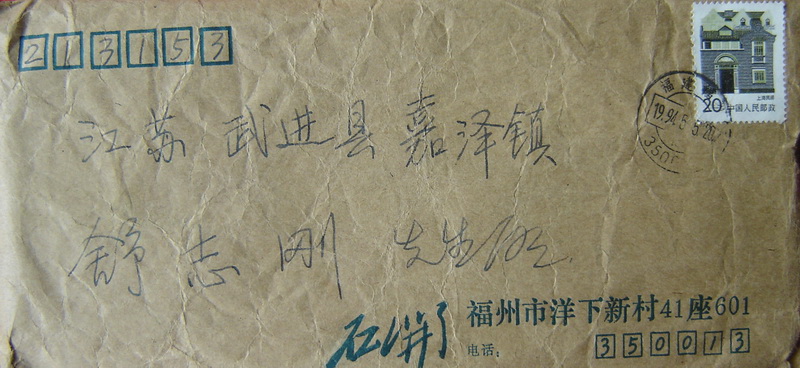 213153
上海民居
20分 中国人民邮政
福建
1994.5.5.20
350
江苏 武进县 嘉泽镇
舒志刚 先生收
福州市洋下新村41座601
电话:
350013